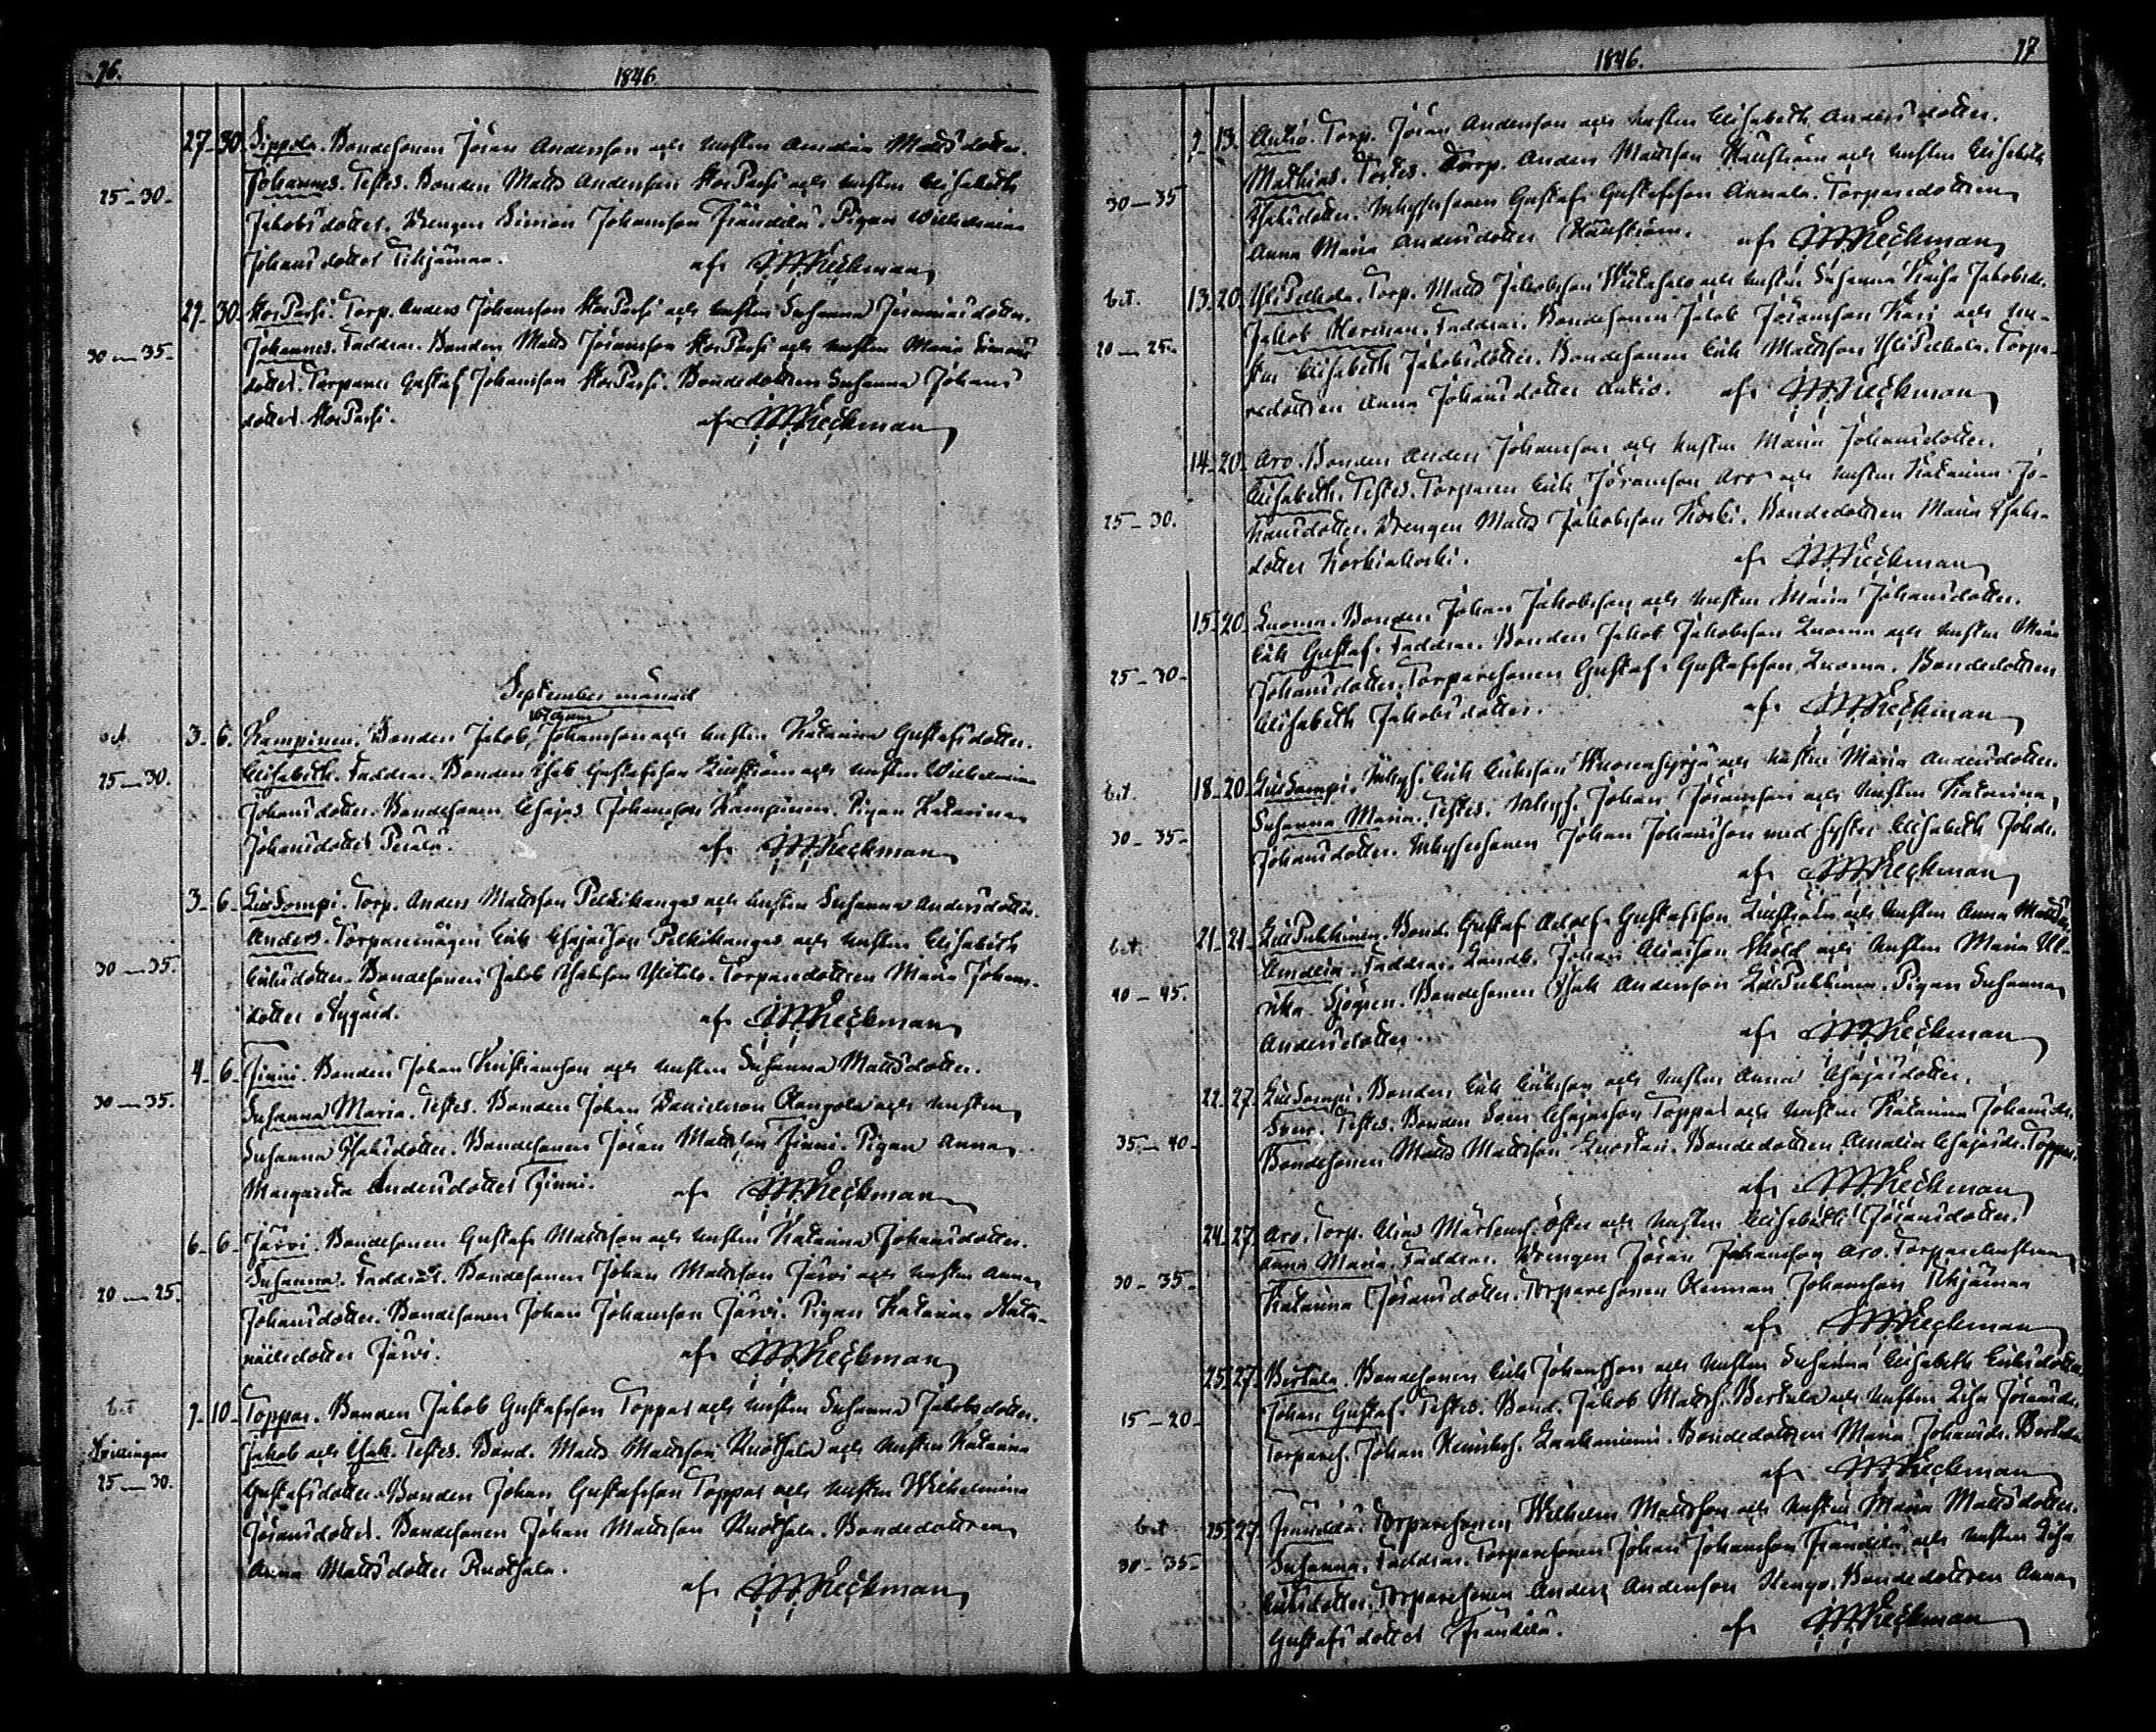 76.
1846.
27. 30. Sippola. Bondesonen Jöran Andersson och hustru Amalia Mattsdotter.
25-30. Johannes. Testes. Bonden Matts Andersson StorPasi och hustru Elisabeth
Jakobsdotter. Drengen Simon Johansson Frändilä. Pigan Wilhelmina
Johansdotter Tikjämaa. af
29. 30. StorPasi. Torp. Anders Johansson StorPasi och hustru Susanna Jeremiasdotter.
30-35. Johannes. Faddrar. Bonden Matts Jöransson StorPasi och hustru Maria Simons
dotter. Torparen Gustaf Johansson StorPasi. Bondedottren Susanna Johans
dotter StorPasi. af
September månad
3. 6. Kampinen. Bonden Jakob Johansson och hustru Katarina Gustafsdotter.
25-30. Elisabeth. Faddrar. Bonden Isak Gustafsson och hustru Wilhelmina
Johansdotter. Bondesonen Esajas Johansson Kampinen. Pigan Katarina
Johansdotter Perälä. af
3. 6. LillSompi. Torp. Anders Mattsson Peltokangas och hustru Susanna Andersdotter.
30-35. Anders. Torparemågen Erik Esajasson Peltokangas och hustru Elisabeth
Eriksdotter. Bondesonen Jakob Isaksson Ylitalo. Torparedottren Maria Johans-
dotter Nygård. af
4. 6. Finni. Bonden Johan Kristiansson och hustru Susanna Mattsdotter.
30-35. Susanna Maria. Testes. Bonden Johan Danielsson och hustru
Susanna Isaksdotter. Bondesonen Jöran Mattsson Finni. Pigan Anna
Margareta Andersdotter Finni. af
6. 6. Järvi. Bondesonen Gustaf Mattsson och hustru Katarina Johansdotter.
20-25. Susanna. Faddrar. Bondesonen Johan Mattsson Järvi och hustru Anna
Johansdotter. Bondesonen Johan Johansson Järvi. Pigan Katarina Nata-
naelsdotter Järvi. af
7. 10. Toppar. Bonden Jakob Gustafsson Toppar och hustru Susanna Jakobsdotter.
Tvillingar Jakob och Isak. Testes. Bond. Matts Mattsson Ruotsala och hustru Katarina
25-30. Gustafsdotter. Bonden Johan Gustafsson Toppar och hustru Wilhelmina
Jöransdotter. Bondesonen Johan Mattsson Ruotsala. Bondedottren
Anna Mattsdotter Ruotsala. af
1846.
77
7. 13. Autio. Torp. Jöran Andersson och hustru Elisabeth Andersdotter.
Mathias. Testes. Torp. Anders Mattsson och hustru Elisabeth
30-35 Isaksdotter. Inhysesonen Gustaf Gustafsson Annala. Torparedottren
Anna Maria Andersdotter af
13. 20. YliPelkola. Torp. Matts Jakobsson och hustru Susanna Kaisa Jakobsdr.
20-25. Jakob Herman. Faddrar. Bondesonen Jakob Jöransson Kari och hu-
stru Elisabeth Jakobsdotter. Bondesonen Erik Mattsson YliPelkola. Torpa-
redottren Anna Johansdotter Autio. af
14. 20. Aro. Bonden Anders Johansson och hustru Maria Johansdotter.
Elisabeth. Testes. Torparen Erik Jöransson Aro och hustru Katarina Jo-
25-30. hansdotter. Drengen Matts Jakobsson Koski. Bondedottren Maria Isaks-
dotter Korkiakoski. af
15. 20. Luoma. Bonden Johan Jakobsson och hustru Maria Johansdotter.
Erik Gustaf. Faddrar. Bonden Jakob Jakobsson Luoma och hustru Maria
25-30. Johansdotter. Torparesonen Gustaf Gustafsson Luoma. Bondedottren
Elisabeth Jakobsdotter. af
18. 20. LillSompi. Inhys. Erik Eriksson och hustru Maria Andersdotter.
Susanna Maria. Testes. Inhys. Johan Jöransson och hustru Katarina
30-35. Johansdotter. Inhysesonen Johan Johansson med syster Elisabeth Johdr.
af
21. 21. LillPukkinen. Bond. Gustaf Adolf Gustafsson och hustru Anna Mattsdr.
Amalia. Faddrar. Landb. Johan Eliasson Sköld och hustru Maria Ul-
40-45. rika Sjögren. Bondesonen Isak Andersson LillPukkinen. Pigan Susanna
Andersdotter. af
22. 27. LillSompi. Bonden Erik Eriksson och hustru Anna Esajasdotter.
Sven. Testes. Bonden Sven Esajasson Toppar och hustru Katarina Johansdr.
35-40. Bondesonen Matts Mattsson Bondedottren Amalia Esajasdr. Toppar.
af
24. 27. Aro. Torp. Elias Mårtens. Öster och hustru Elisabeth Jöransdotter.
Anna Maria. Faddrar. Drengen Jöran Johansson Aro. Torparehustrun
30-35. Katarina Jöransdotter. Torparesonen Herman Johansson Tikjämaa
af
25. 27. Bertula. Bondesonen Erik Johansson och hustru Susanna Elisabeth Eriksdotter.
15-20. Johan Gustaf. Testes. Bond. Jakob Matts. Bertula och hustru Lisa Jöransdr.
Torpares. Johan Bondedottren Maria Johansdr. Bertula
af
25. 27. Frändilä. Torparesonen Wilhelm Mattsson och hustru Maria Mattsdotter.
30-35. Susanna. Faddrar. Torparesonen Johan Johansson Frändilä och hustru Lisa
Eriksdotter. Torparesonen Anders Andersson Kengo. Bondedottren Anna
Gustafsdotter Frändilä. af